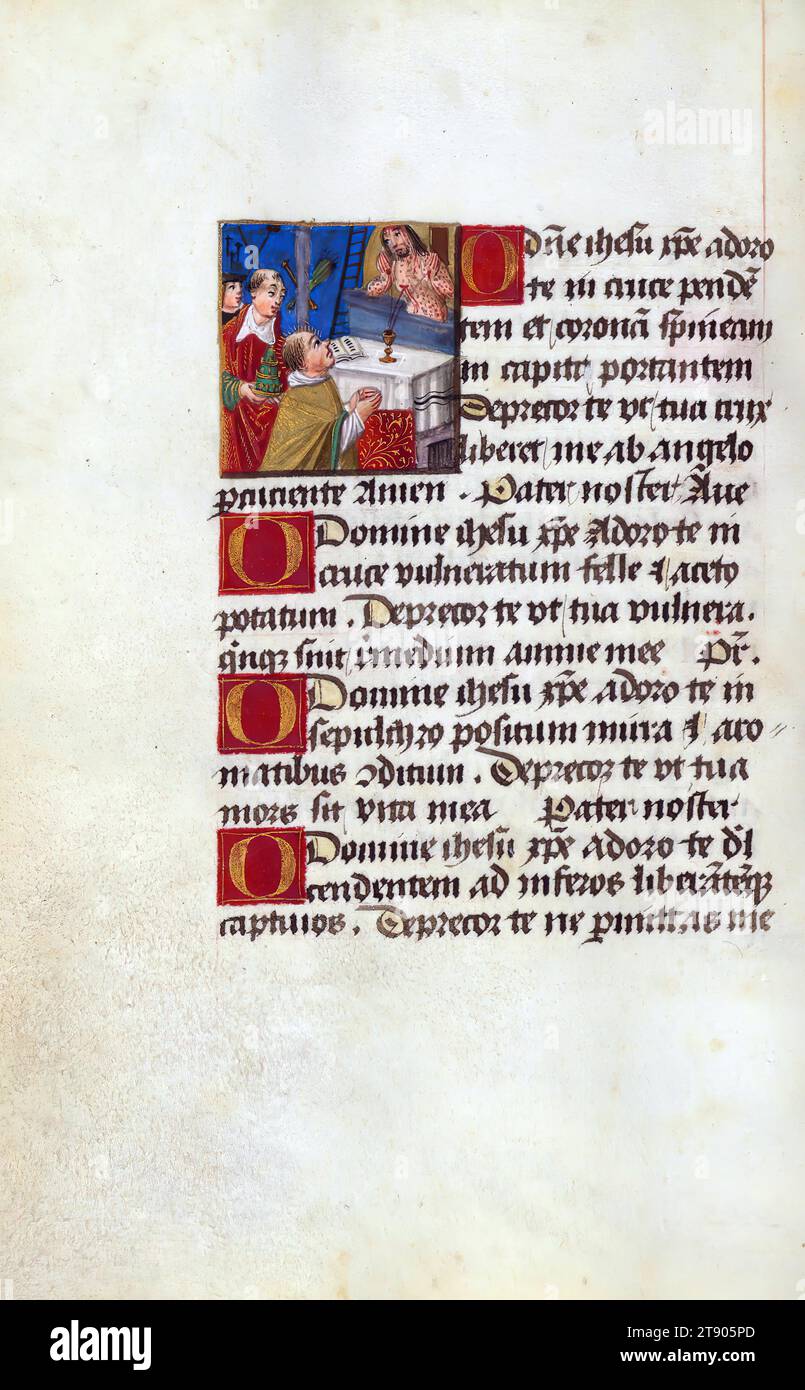 O dñe ihesu xp̄e adoro
te in cruce pendē
tem et coronā spineam
in capite portantem
Deprecor te vt tua crux
liberet me ab angelo
percuciente Amen . Pater noster Aue
O Domine ihesu xp̄e Adoro te in
cruce vulneratum felle & aceto
potatum . Deprecor te vt tua vulnera .
sint remedium anime mee Pr̄ .
O Domine ihesu xp̄e adoro te in
sepulchro positum mirra & aro
matibus ꝯditum . Deprecor te vt tua
mors sit vita mea Pater noster
O Domine ihesū xp̄e adoro te
cendentem ad inferos liberātēqꝫ
captiuos . Deprecor te ne permittas me
alamy
Image ID: 2T905PD
www.alamy.com